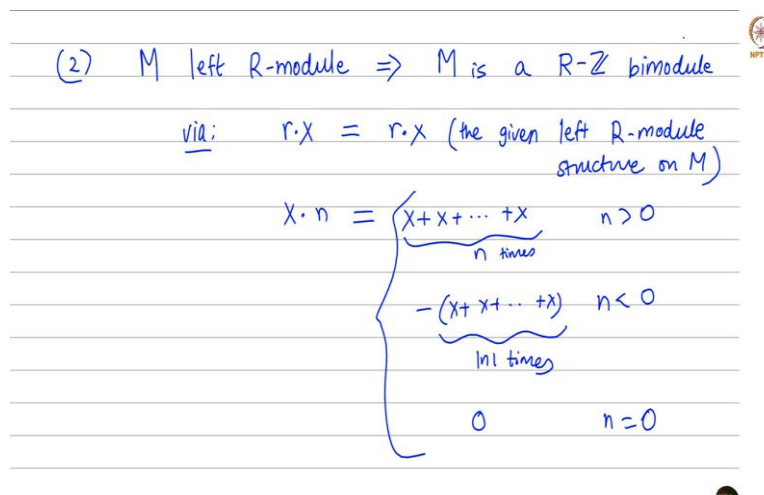 (2) M left R-module ⇒ M is a R-ℤ bimodule
via: r·x = r·x (the given left R-module
structure on M)
x·n = { x+x+⋯+x n>0
n times
-(x+x+⋯+x) n<0
|n| times
0 n=0
NPT